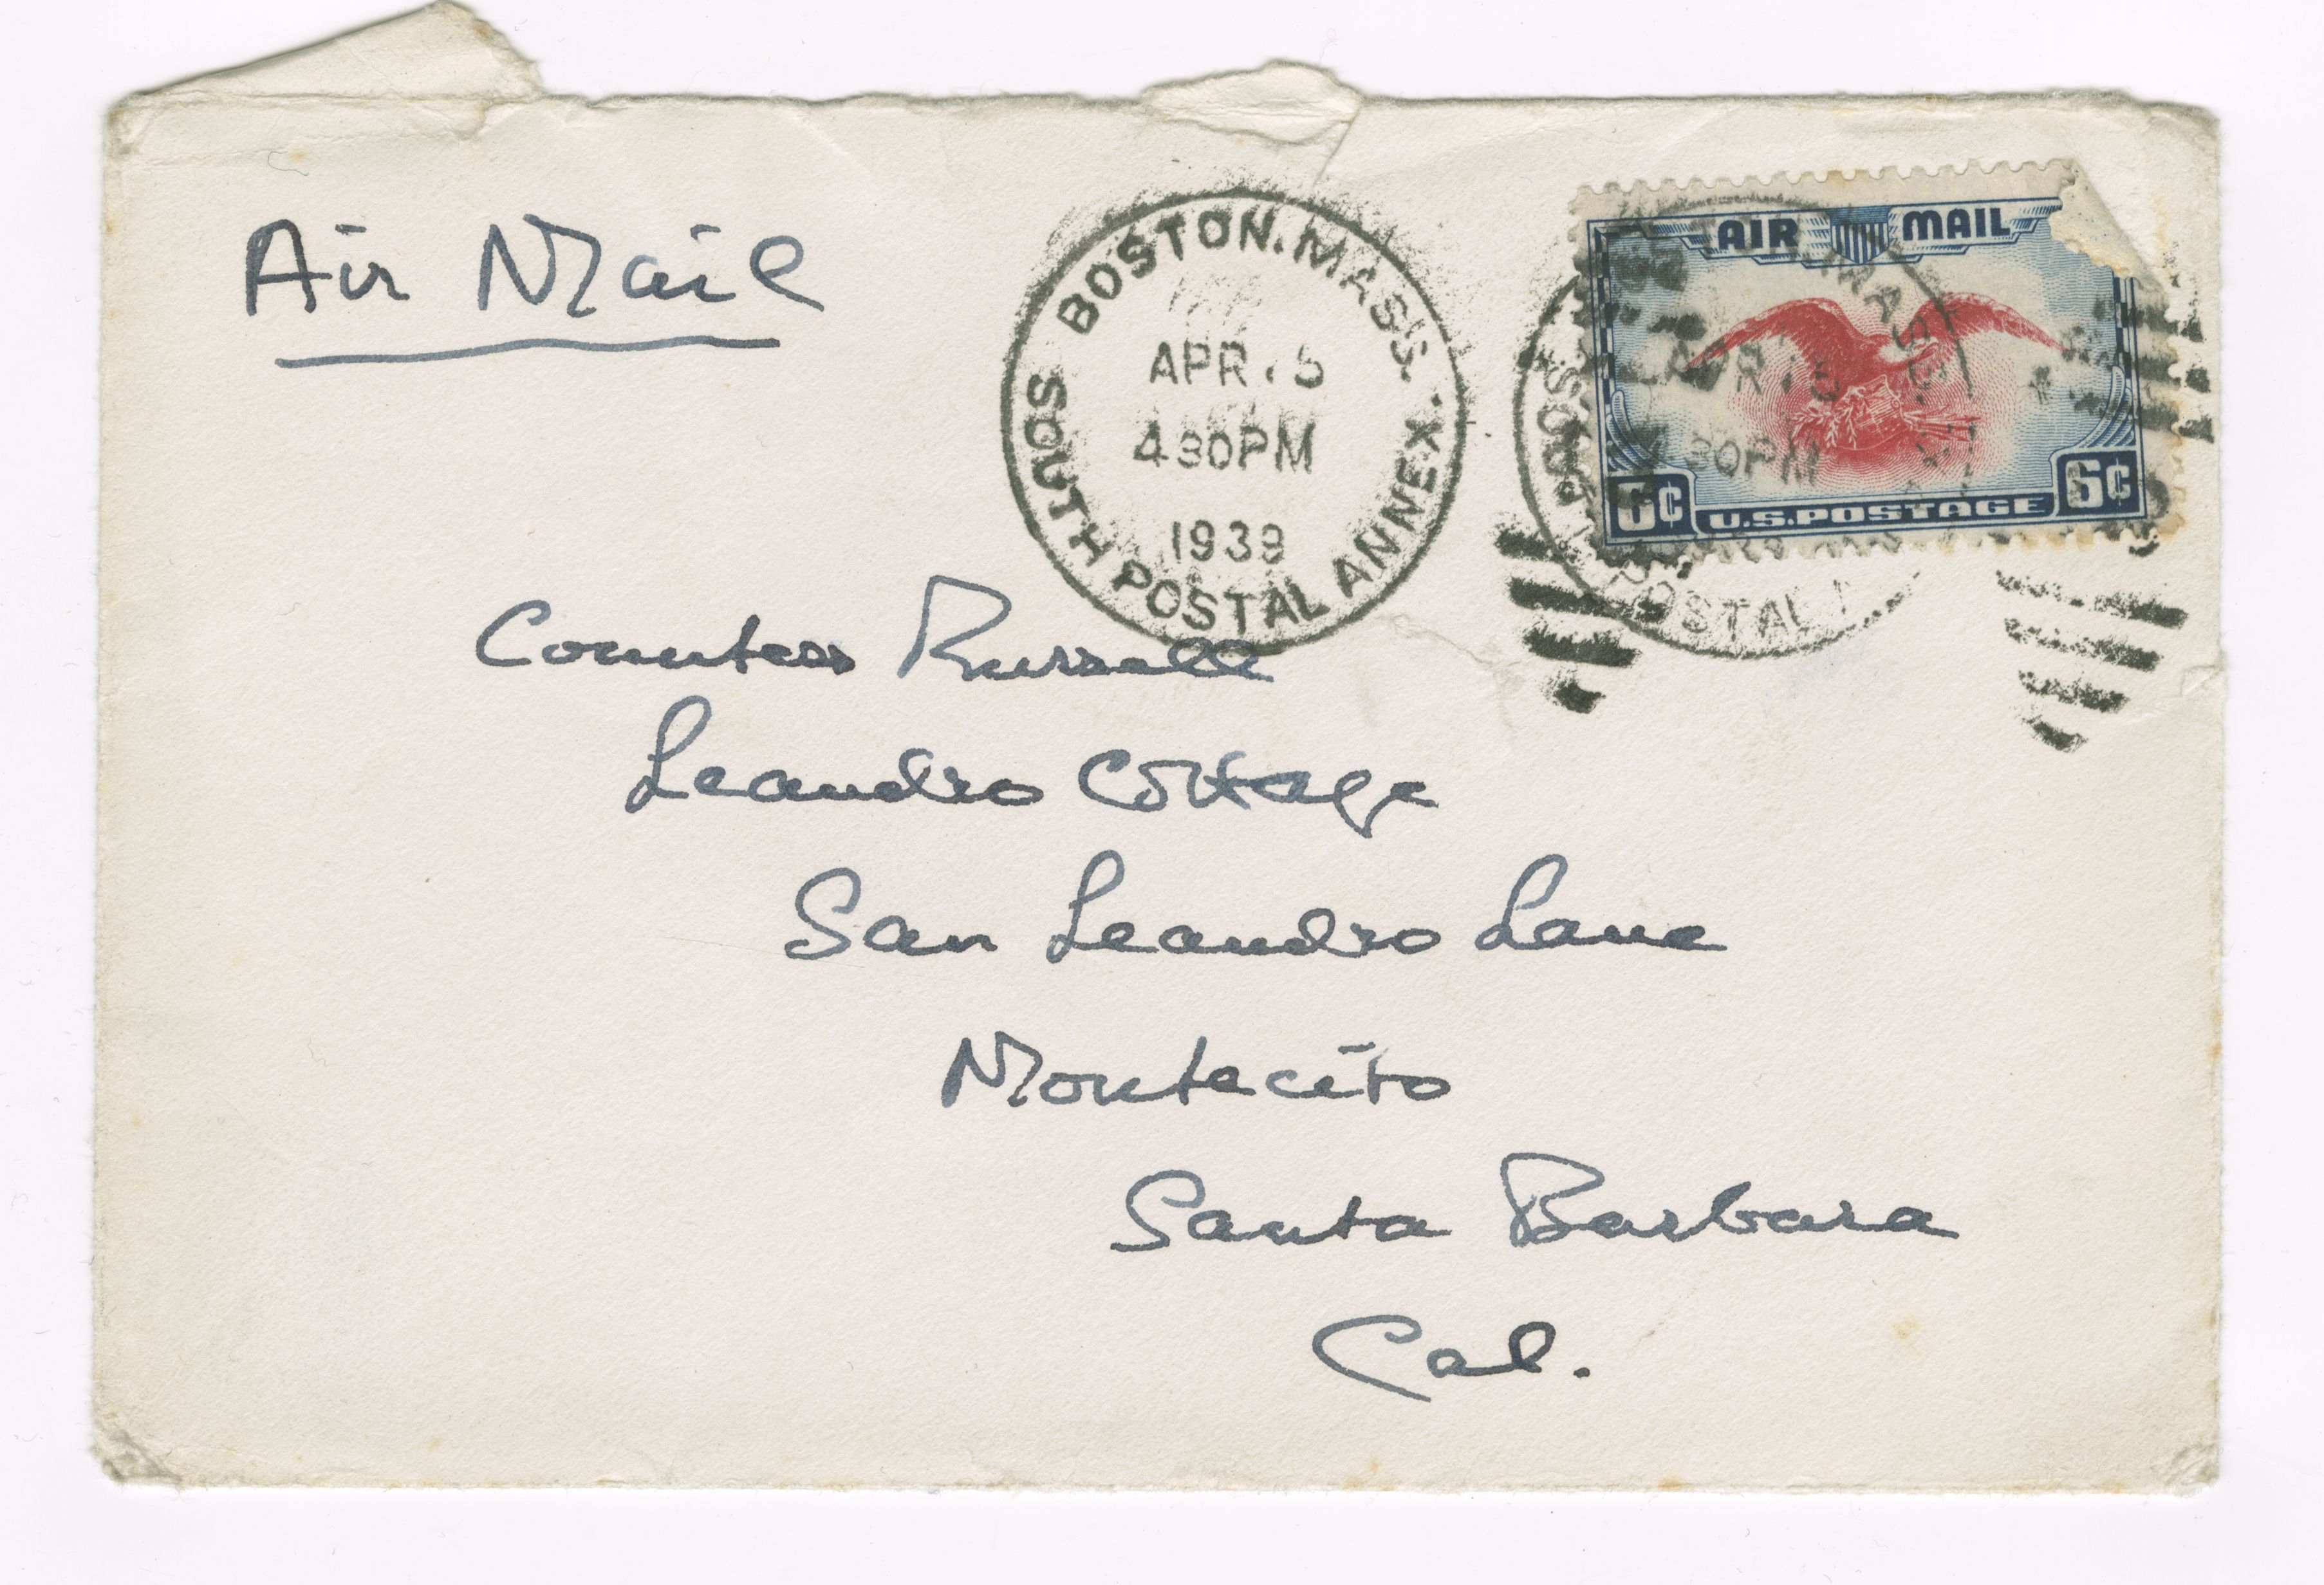 Air Mail
BOSTON. MASS.
SOUTH POSTAL ANNEX.
APR. 5
430PM
1939
AIR MAIL
6¢ U.S. POSTAGE 6¢
Countess Russell
Leandro Cottage
San Leandro Lane
Montecito
Santa Barbara
Cal.